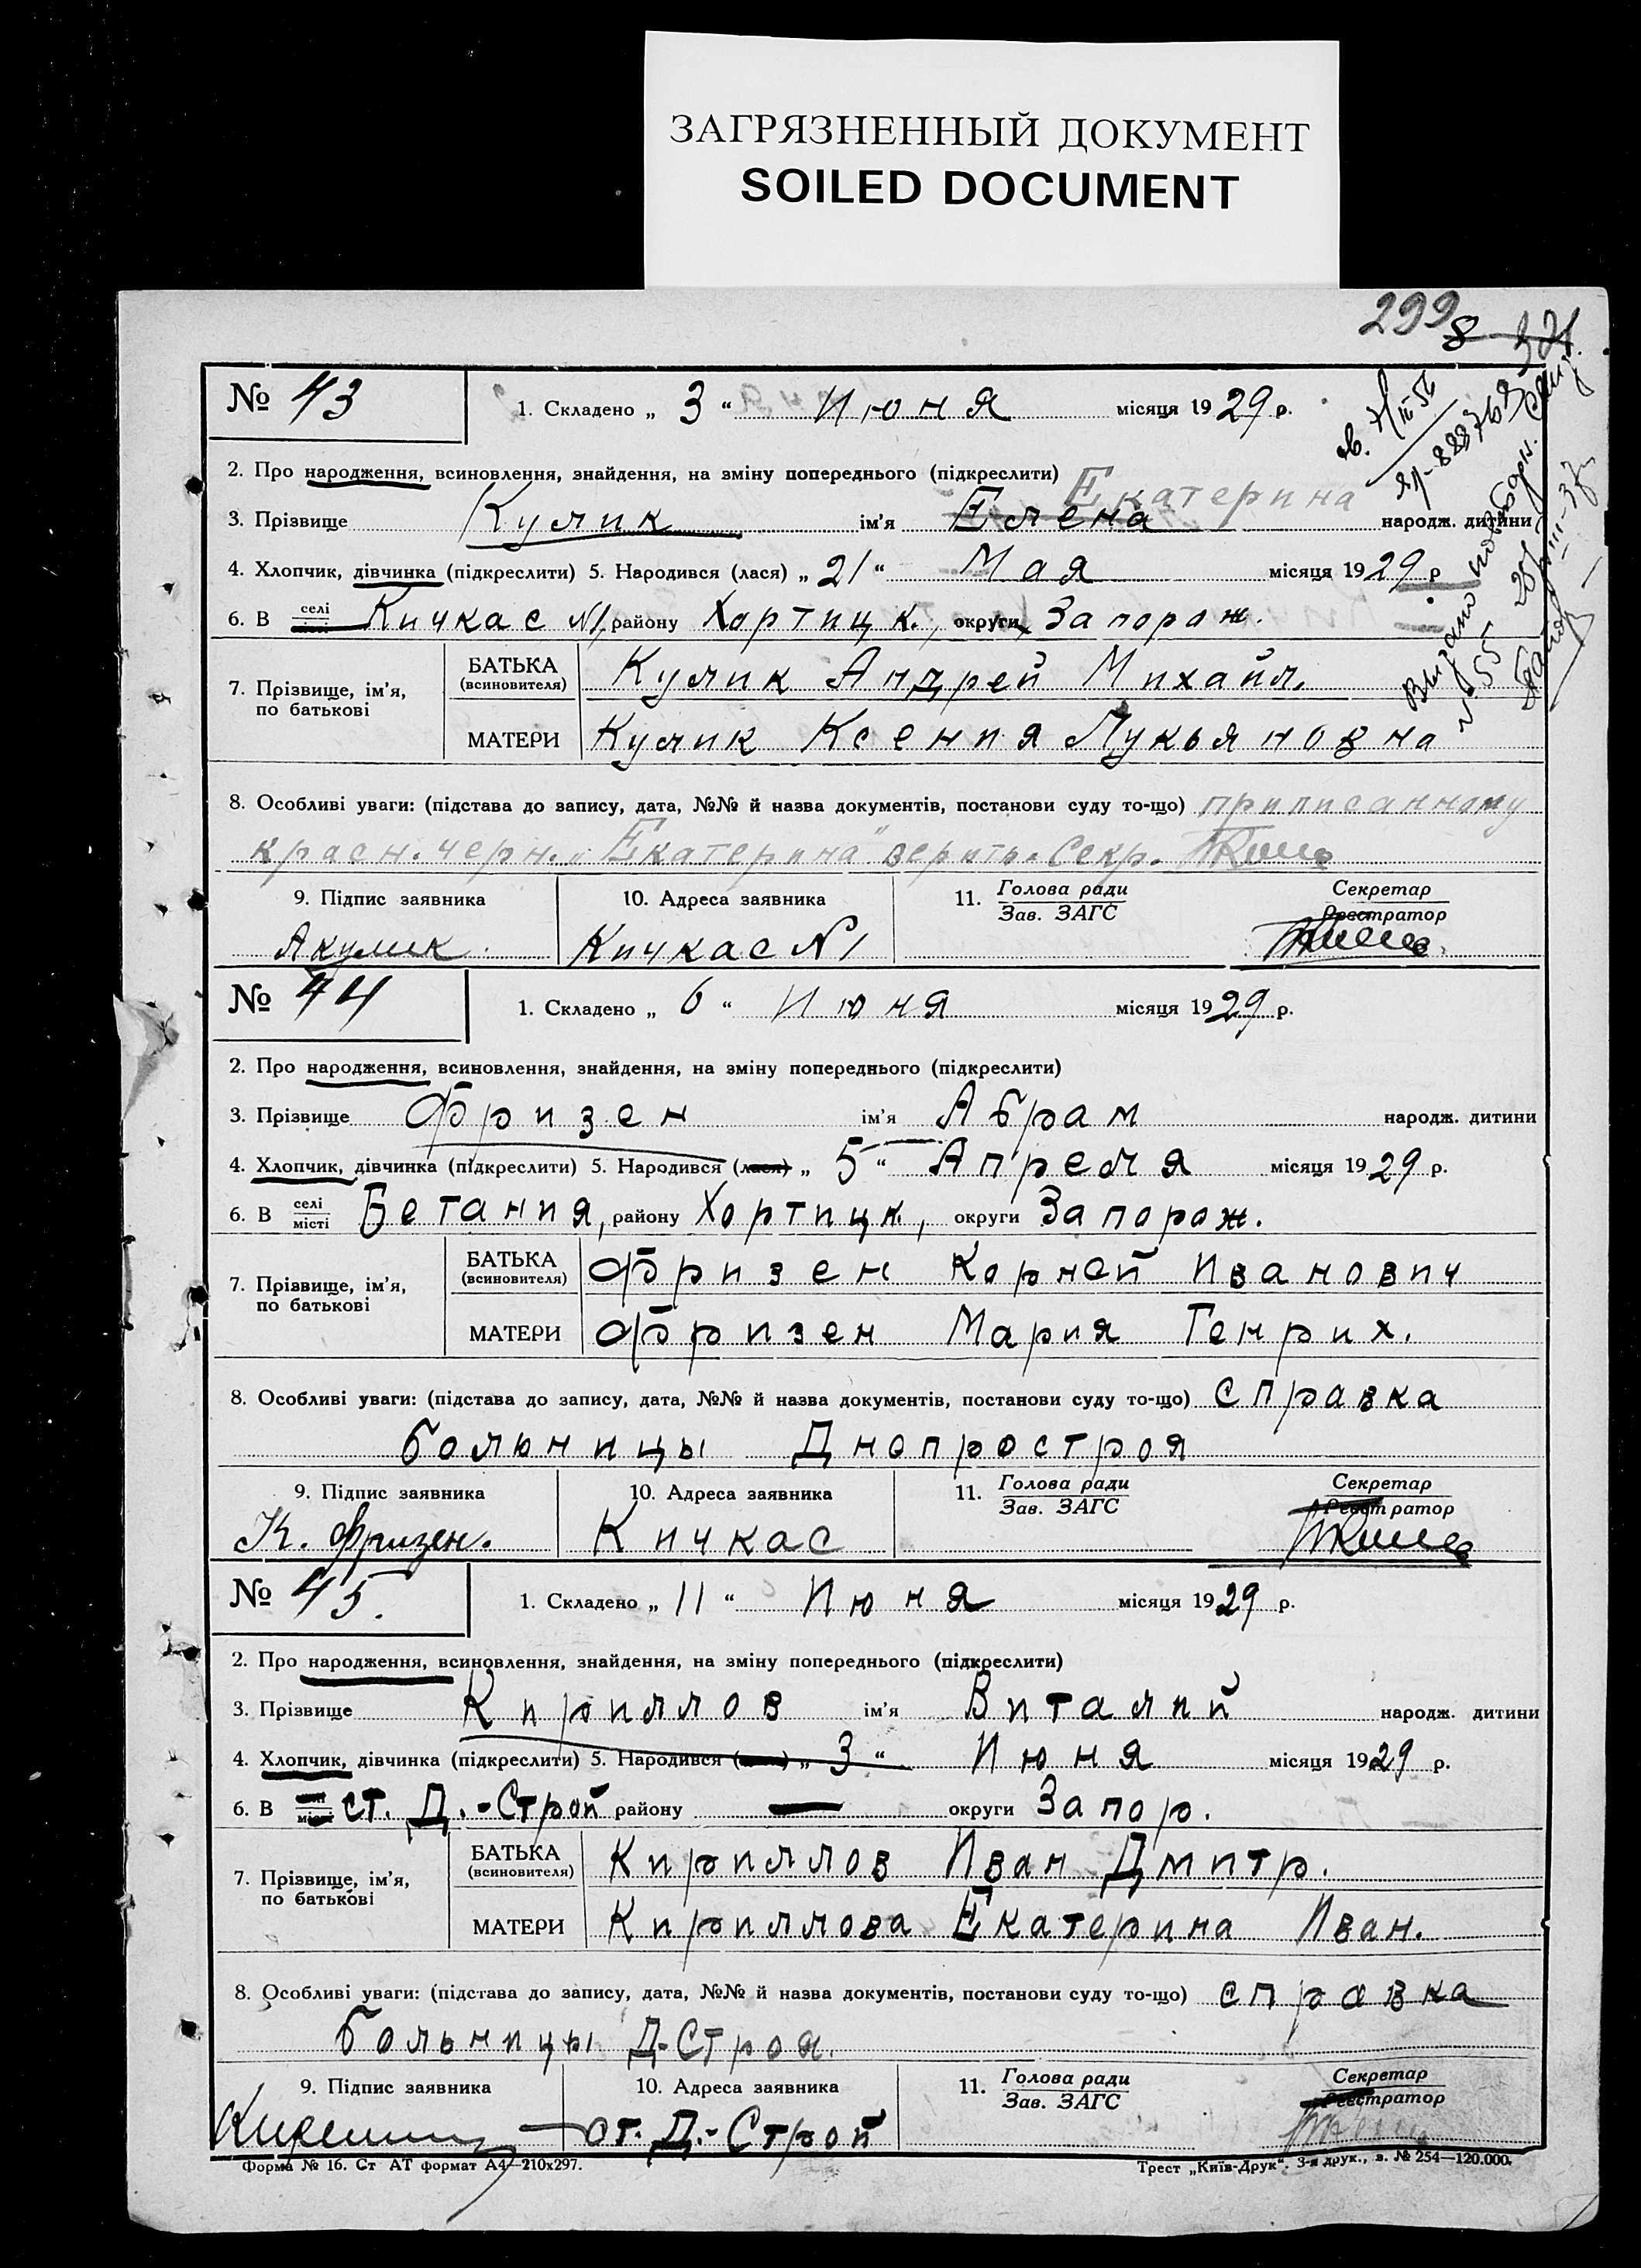 ЗАГРЯЗНЕННЫЙ ДОКУМЕНТ
SOILED DOCUMENT
299
№ 43
1. Складено „ 3 “ Июня місяця 1929 р.
2. Про народження, всиновлення, знайдення, на зміну попереднього (підкреслити)
Екатерина
3. Прізвище Кулик ім'я Елена народж. дитини
4. Хлопчик, дівчинка (підкреслити) 5. Народився (лася) „ 21 “ Мая місяця 1929 р
6. В селі Кичкас N1, району Хортицк., округи Запорож.
7. Прізвище, ім'я, по батькові
БАТЬКА (всиновителя) Кулик Андрей Михайл.
МАТЕРИ Кулик Ксения Лукьяновна
Видано повторн.
№ 55
8. Особливі уваги: (підстава до запису, дата, №№ й назва документів, постанови суду то-що) приписанному
красн. черн. „Екатерина“ верить. Секр.
9. Підпис заявника
10. Адреса заявника
11. Голова ради
Зав. ЗАГС
Секретар
Реєстратор
Акулик
Кичкас N1
№ 44
1. Складено „ 6 “ Июня місяця 1929 р.
2. Про народження, всиновлення, знайдення, на зміну попереднього (підкреслити)
3. Прізвище Фризен ім'я Абрам народж. дитини
4. Хлопчик, дівчинка (підкреслити) 5. Народився (лася) „ 5 “ Апреля місяця 1929 р.
6. В селі місті Бетания, району Хортицк., округи Запорож.
7. Прізвище, ім'я, по батькові
БАТЬКА (всиновителя) Фризен Корней Иванович
МАТЕРИ Фризен Мария Генрих.
8. Особливі уваги: (підстава до запису, дата, №№ й назва документів, постанови суду то-що) справка
больницы Днепростроя
9. Підпис заявника
10. Адреса заявника
11. Голова ради
Зав. ЗАГС
Секретар
Реєстратор
К. Фризен.
Кичкас
№ 45.
1. Складено „ 11 “ Июня місяця 1929 р.
2. Про народження, всиновлення, знайдення, на зміну попереднього (підкреслити)
3. Прізвище Кириллов ім'я Виталий народж. дитини
4. Хлопчик, дівчинка (підкреслити) 5. Народився „ 3 “ Июня місяця 1929 р.
6. В ст. Д.-Строй району — округи Запор.
7. Прізвище, ім'я, по батькові
БАТЬКА (всиновителя) Кириллов Иван Дмитр.
МАТЕРИ Кириллова Екатерина Иван.
8. Особливі уваги: (підстава до запису, дата, №№ й назва документів, постанови суду то-що) справка
больницы Д-Строя.
9. Підпис заявника
10. Адреса заявника
11. Голова ради
Зав. ЗАГС
Секретар
Реєстратор
ст. Д.-Строй
Форма № 16. Ст АТ формат А4—210х297.
Трест „Київ-Друк“. 3-я друк., з. № 254—120.000.